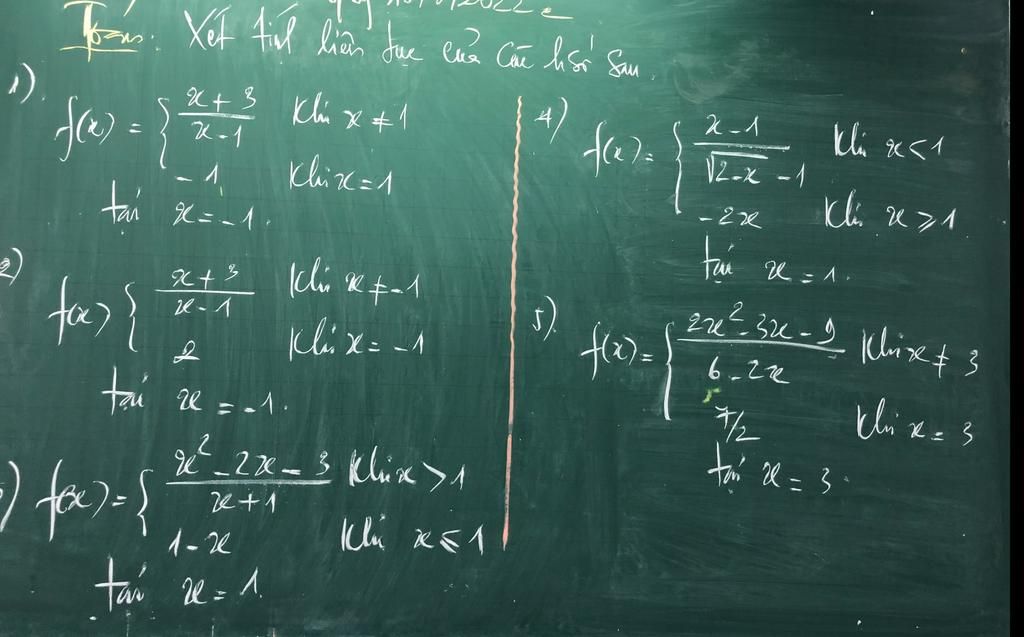 Toán: Xét tính liên tục của các hsố sau.
1)
f(x) = { (x + 3)/(x - 1) khi x ≠ 1
- 1 khi x = 1
tại x = -1.
2)
f(x) { (x + 3)/(x - 1) khi x ≠ -1
2 khi x = -1
tại x = -1.
) f(x) = { (x² - 2x - 3)/(x + 1) khi x > 1
1 - x khi x ≤ 1
tại x = 1
4)
f(x) = { (x - 1)/(√(2 - x) - 1) khi x < 1
- 2x khi x ≥ 1
tại x = 1.
5)
f(x) = { (2x² - 3x - 9)/(6 - 2x) khi x ≠ 3
7/2 khi x = 3
tại x = 3.